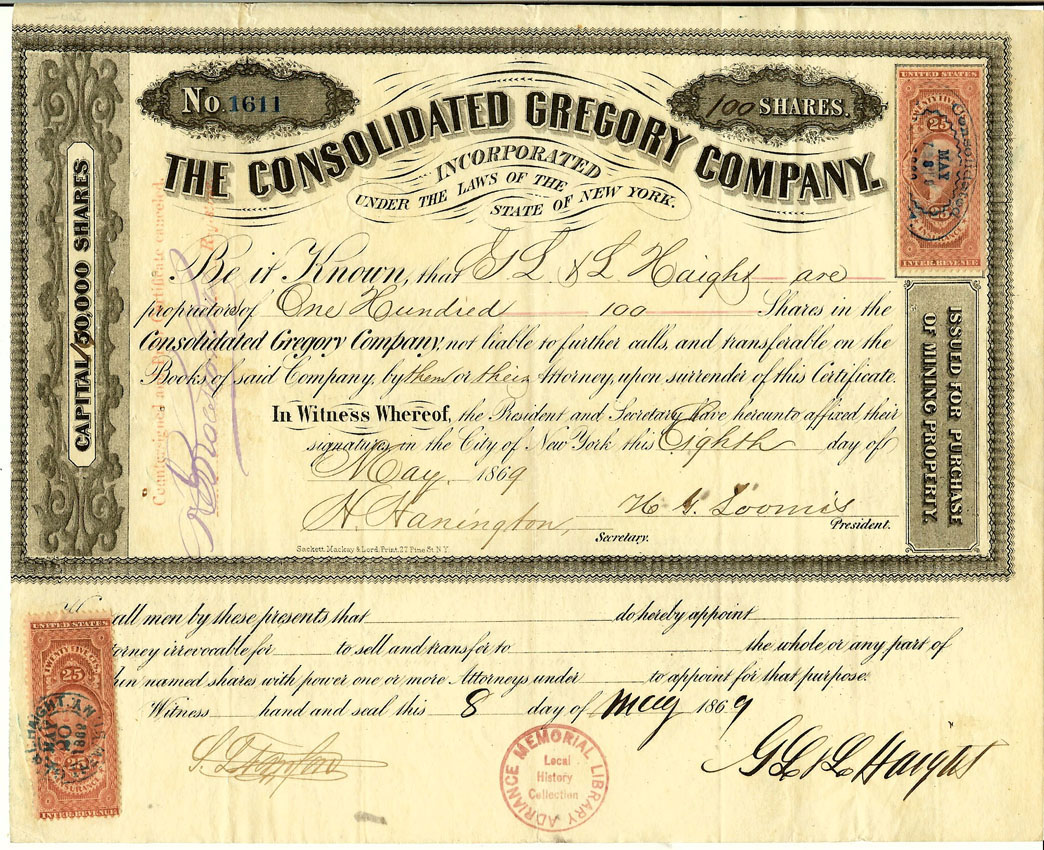 No. 1611
100 SHARES.
THE CONSOLIDATED GREGORY COMPANY.
INCORPORATED
UNDER THE LAWS OF THE
STATE OF NEW YORK.
CAPITAL 50,000 SHARES
UNITED STATES
25
MAY
INTER. REVENUE
ISSUED FOR PURCHASE
OF MINING PROPERTY.
Be it Known, that G L & L Haight are
proprietors of One Hundred 100 Shares in the
Consolidated Gregory Company, not liable to further calls, and transferable on the
Books of said Company, by them or their Attorney, upon surrender of this Certificate.
In Witness Whereof, the President and Secretary have hereunto affixed their
signatures, in the City of New York this Eighth day of
May 1869
H. Hanington,
Secretary.
H G Loomis
President.
Sackett, Mackay & Lord, Print. 77 Pine St. N.Y.
all men by these presents that do hereby appoint
irrevocable for to sell and transfer to the whole or any part of
named shares with power one or more Attorneys under to appoint for that purpose.
Witness hand and seal this 8 day of May 1869
G L & L Haight
UNITED STATES
25
MAY
INTER. REVENUE
ADRIANCE MEMORIAL LIBRARY
Local
History
Collection